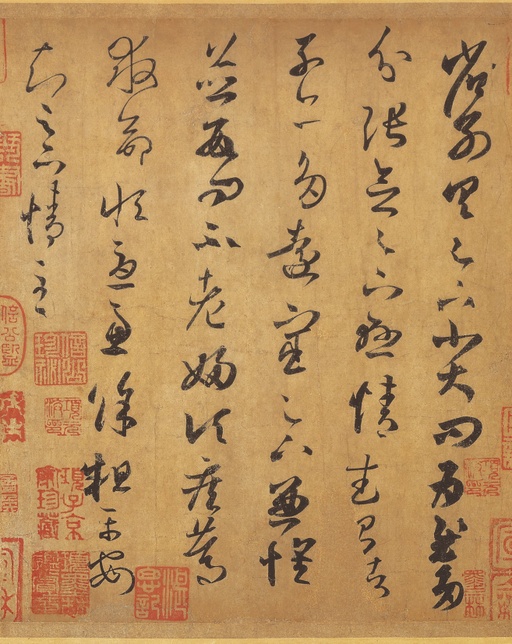 省別具足下小大問為慰多
分張念足下懸情武昌諸
子亦多遠宦足下兼懷
並數問不老婦頃疾篤
救命恆憂慮餘粗平安
知足下情至